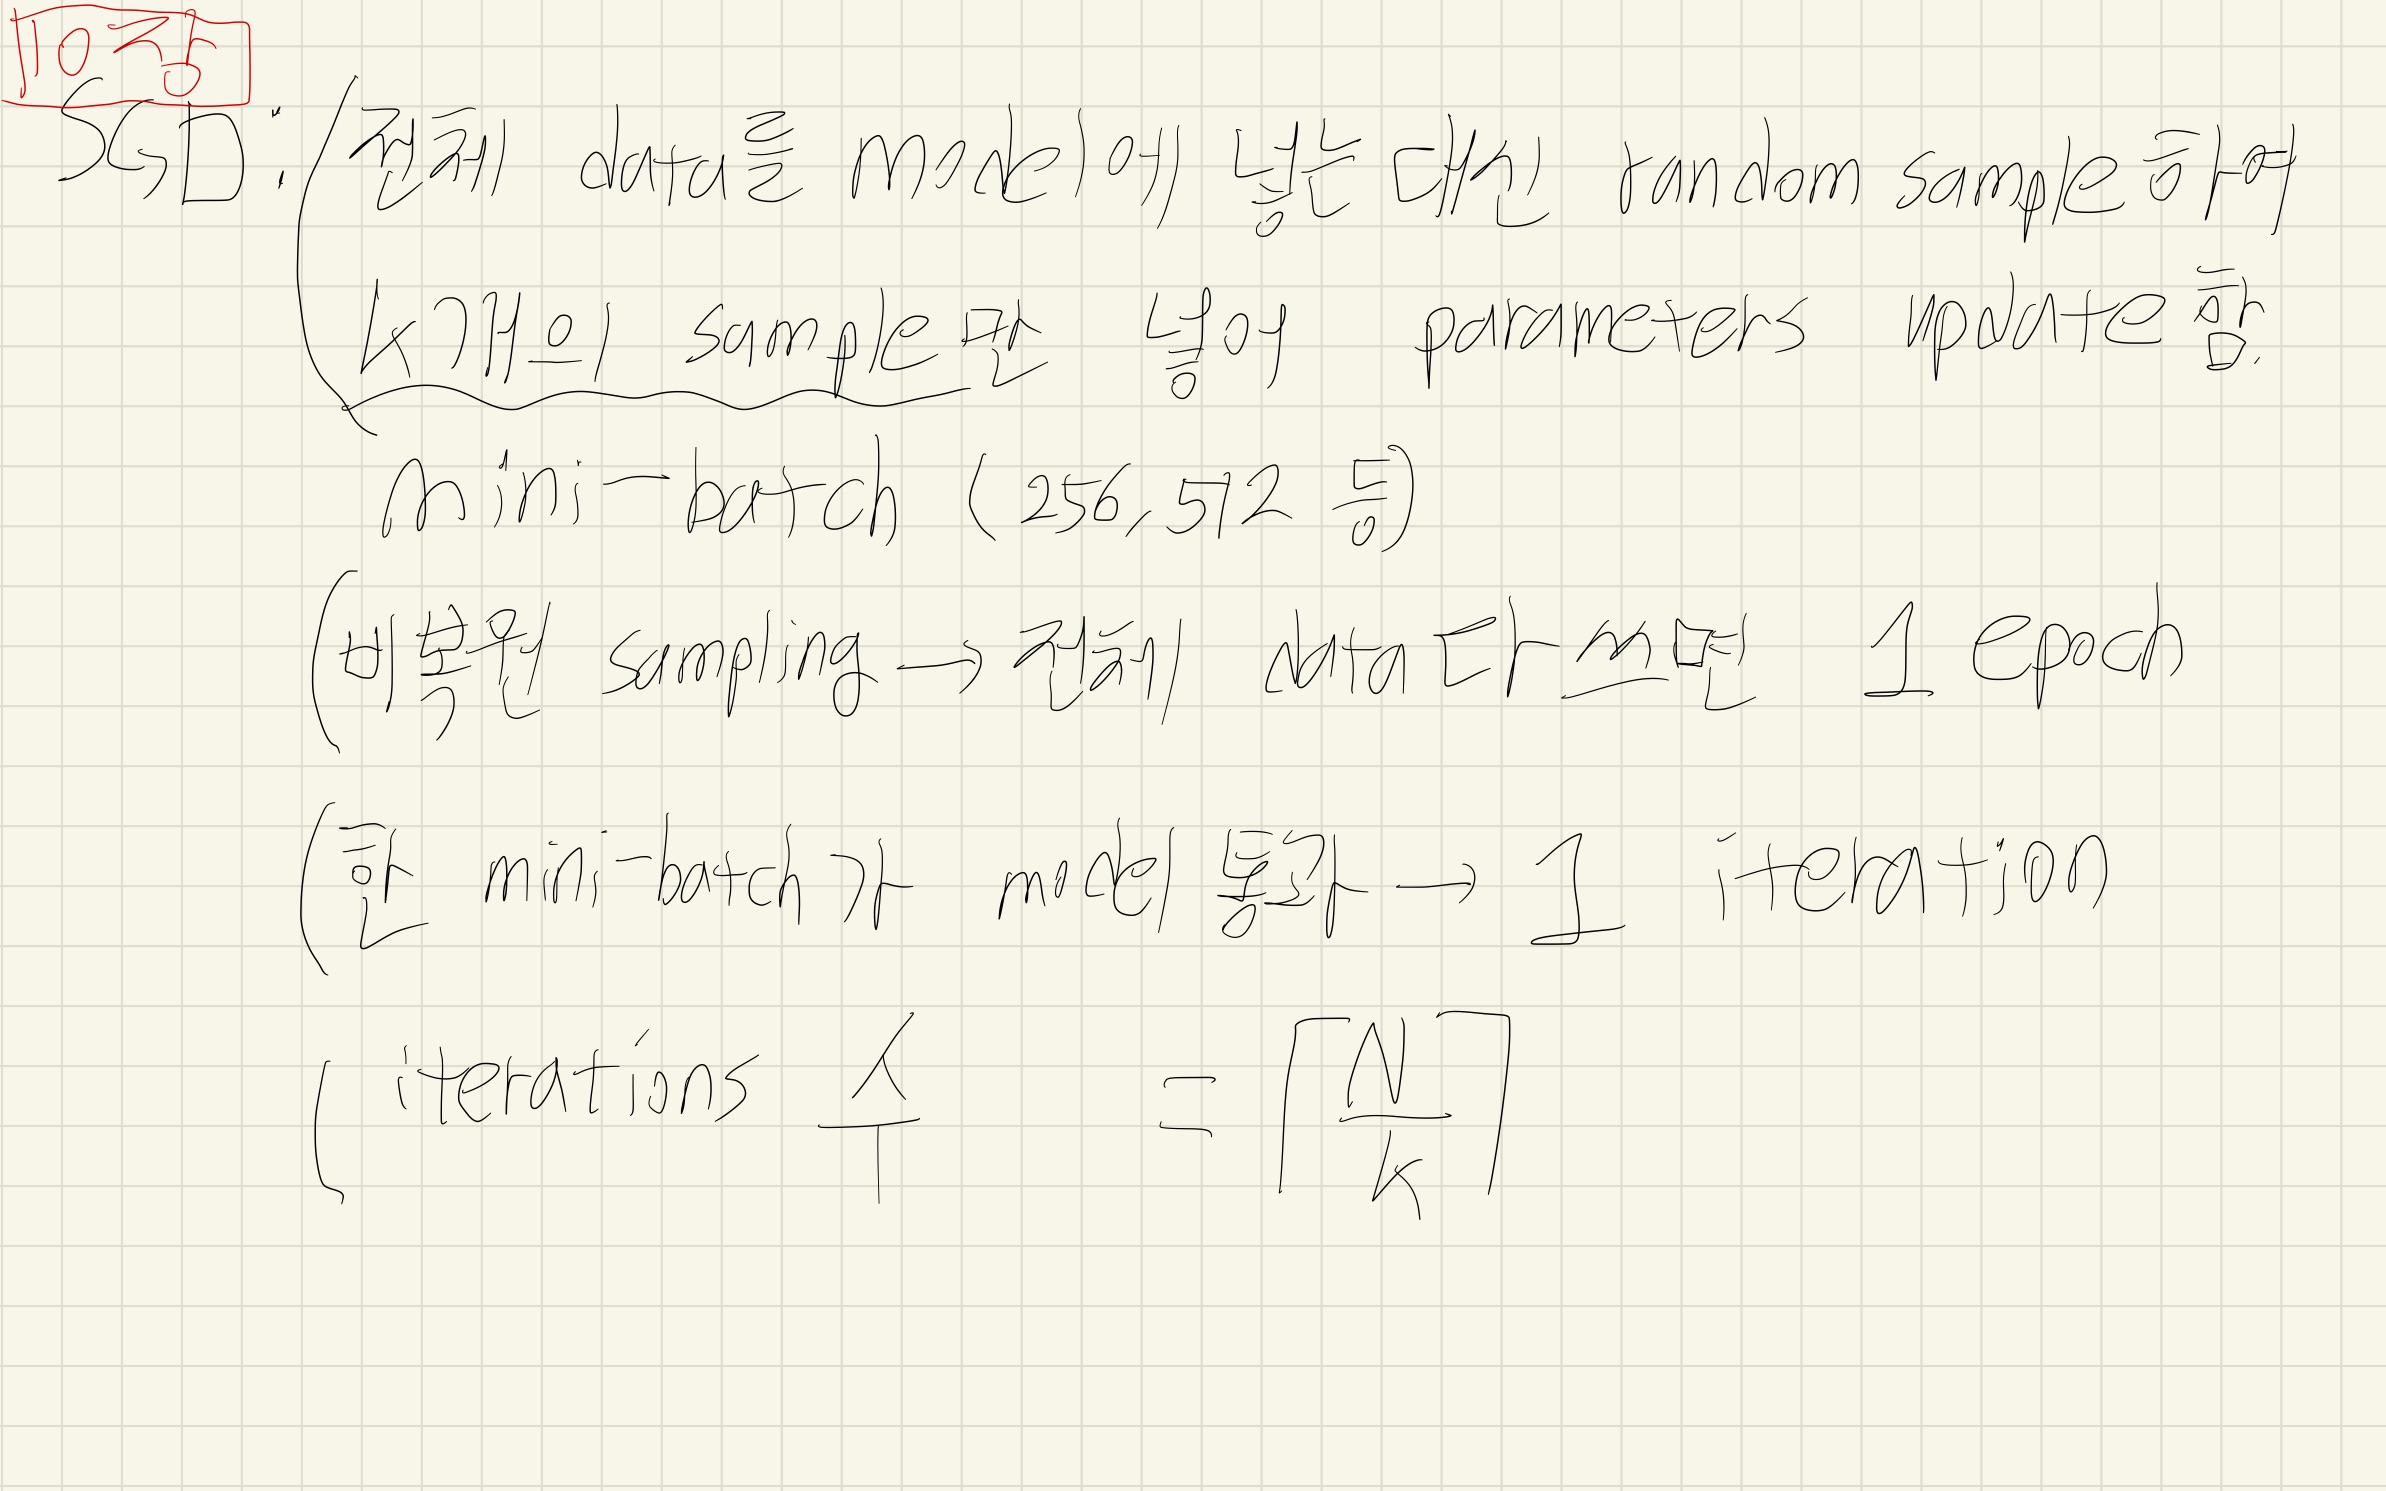 10장
SGD: 전체 data를 model에 넣는 대신 random sample하여
k개의 sample만 넣어 parameters update함.
mini-batch (256, 512 등)
비복원 sampling → 전체 data 다 쓰면 1 epoch
한 mini-batch가 model 통과 → 1 iteration
iterations 수 = ⌈N/k⌉